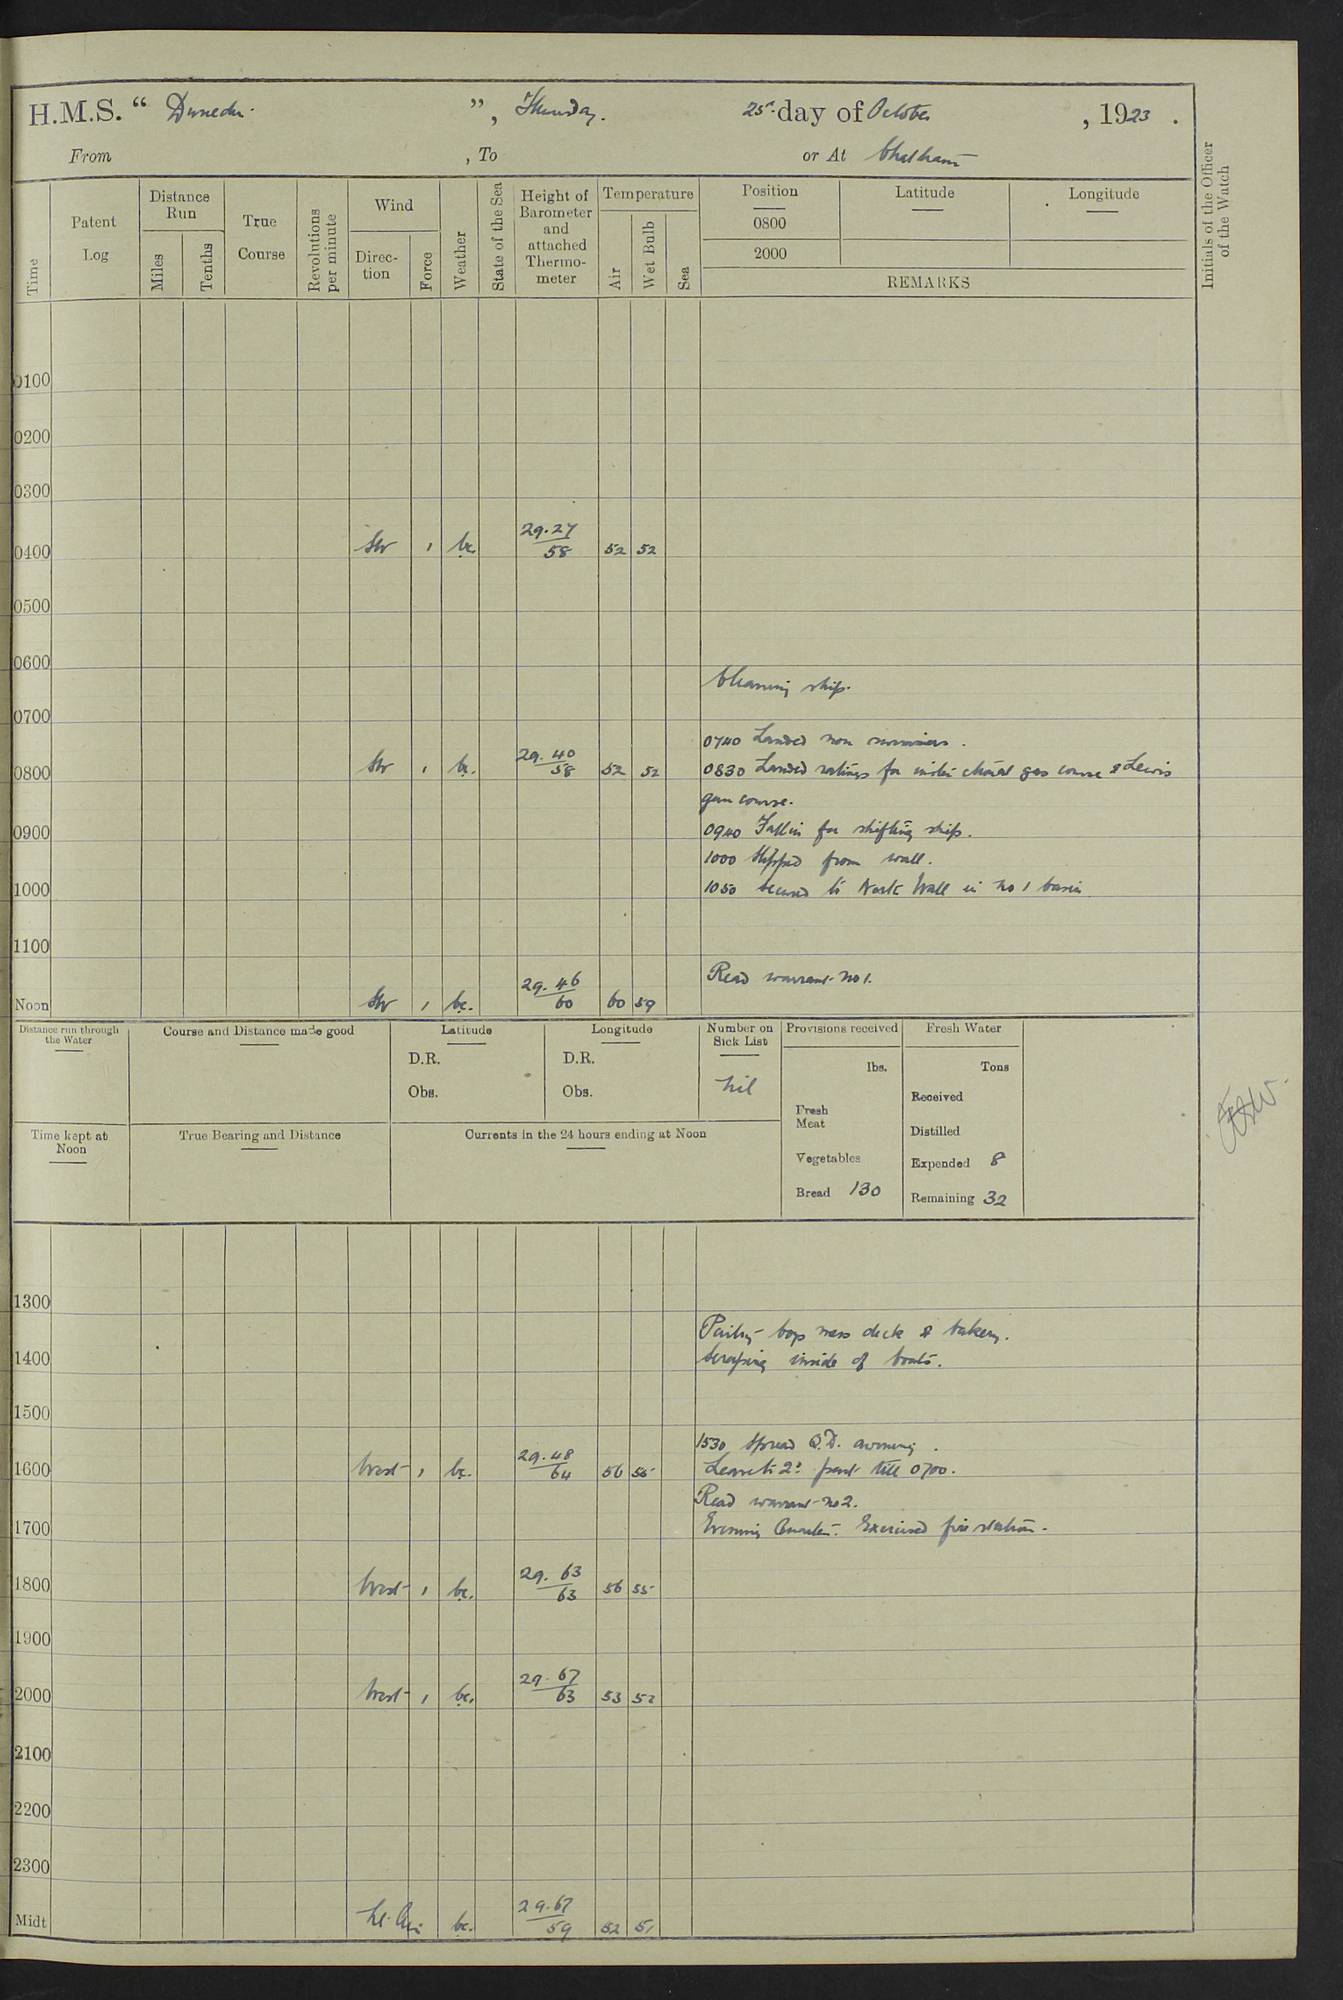 H.M.S. “ Dunedin ”, Thursday. 25th day of October, 1923.
From , To or At Chatham
Time
Patent Log
Distance Run
Miles
Tenths
True Course
Revolutions per minute
Wind
Direction
Force
Weather
State of the Sea
Height of Barometer and attached Thermometer
Temperature
Air
Wet Bulb
Sea
Position
Latitude
Longitude
0800
2000
REMARKS
Initials of the Officer of the Watch
0100
0200
0300
0400 SW 1 bc. 29.27 58 52 52
0500
0600
Cleaning ship.
0700
0740 Landed non swimmers.
0800 SW 1 bc. 29.40 58 52 52
0830 Landed ratings for gas course & Lewis
gun course.
0900
0940 Fall in for shifting ship.
1000 Slipped from wall.
1000
1050 Secured to North Wall in No 1 basin
1100
Read warrant No 1.
Noon SW 1 bc. 29.46 60 60 59
Distance run through the Water
Course and Distance made good
Latitude
D.R.
Obs.
Longitude
D.R.
Obs.
Number on Sick List
Nil
Provisions received
lbs.
Fresh Meat
Vegetables
Bread 130
Fresh Water
Tons
Received
Distilled
Expended 8
Remaining 32
Time kept at Noon
True Bearing and Distance
Currents in the 24 hours ending at Noon
1300
Painting boys mess deck & bakery.
1400
Scraping inside of boats.
1500
1530 Spread Q.D. awning.
1600 West 1 bc. 29.48 64 56 55
Leave to 2nd part till 0700.
Read warrant No 2.
1700
Evening Quarters. Exercised fire stations.
1800 West 1 bc. 29.63 63 56 55
1900
2000 West 1 bc. 29.67 63 53 52
2100
2200
2300
Midt Lt. Air bc. 29.67 59 52 51